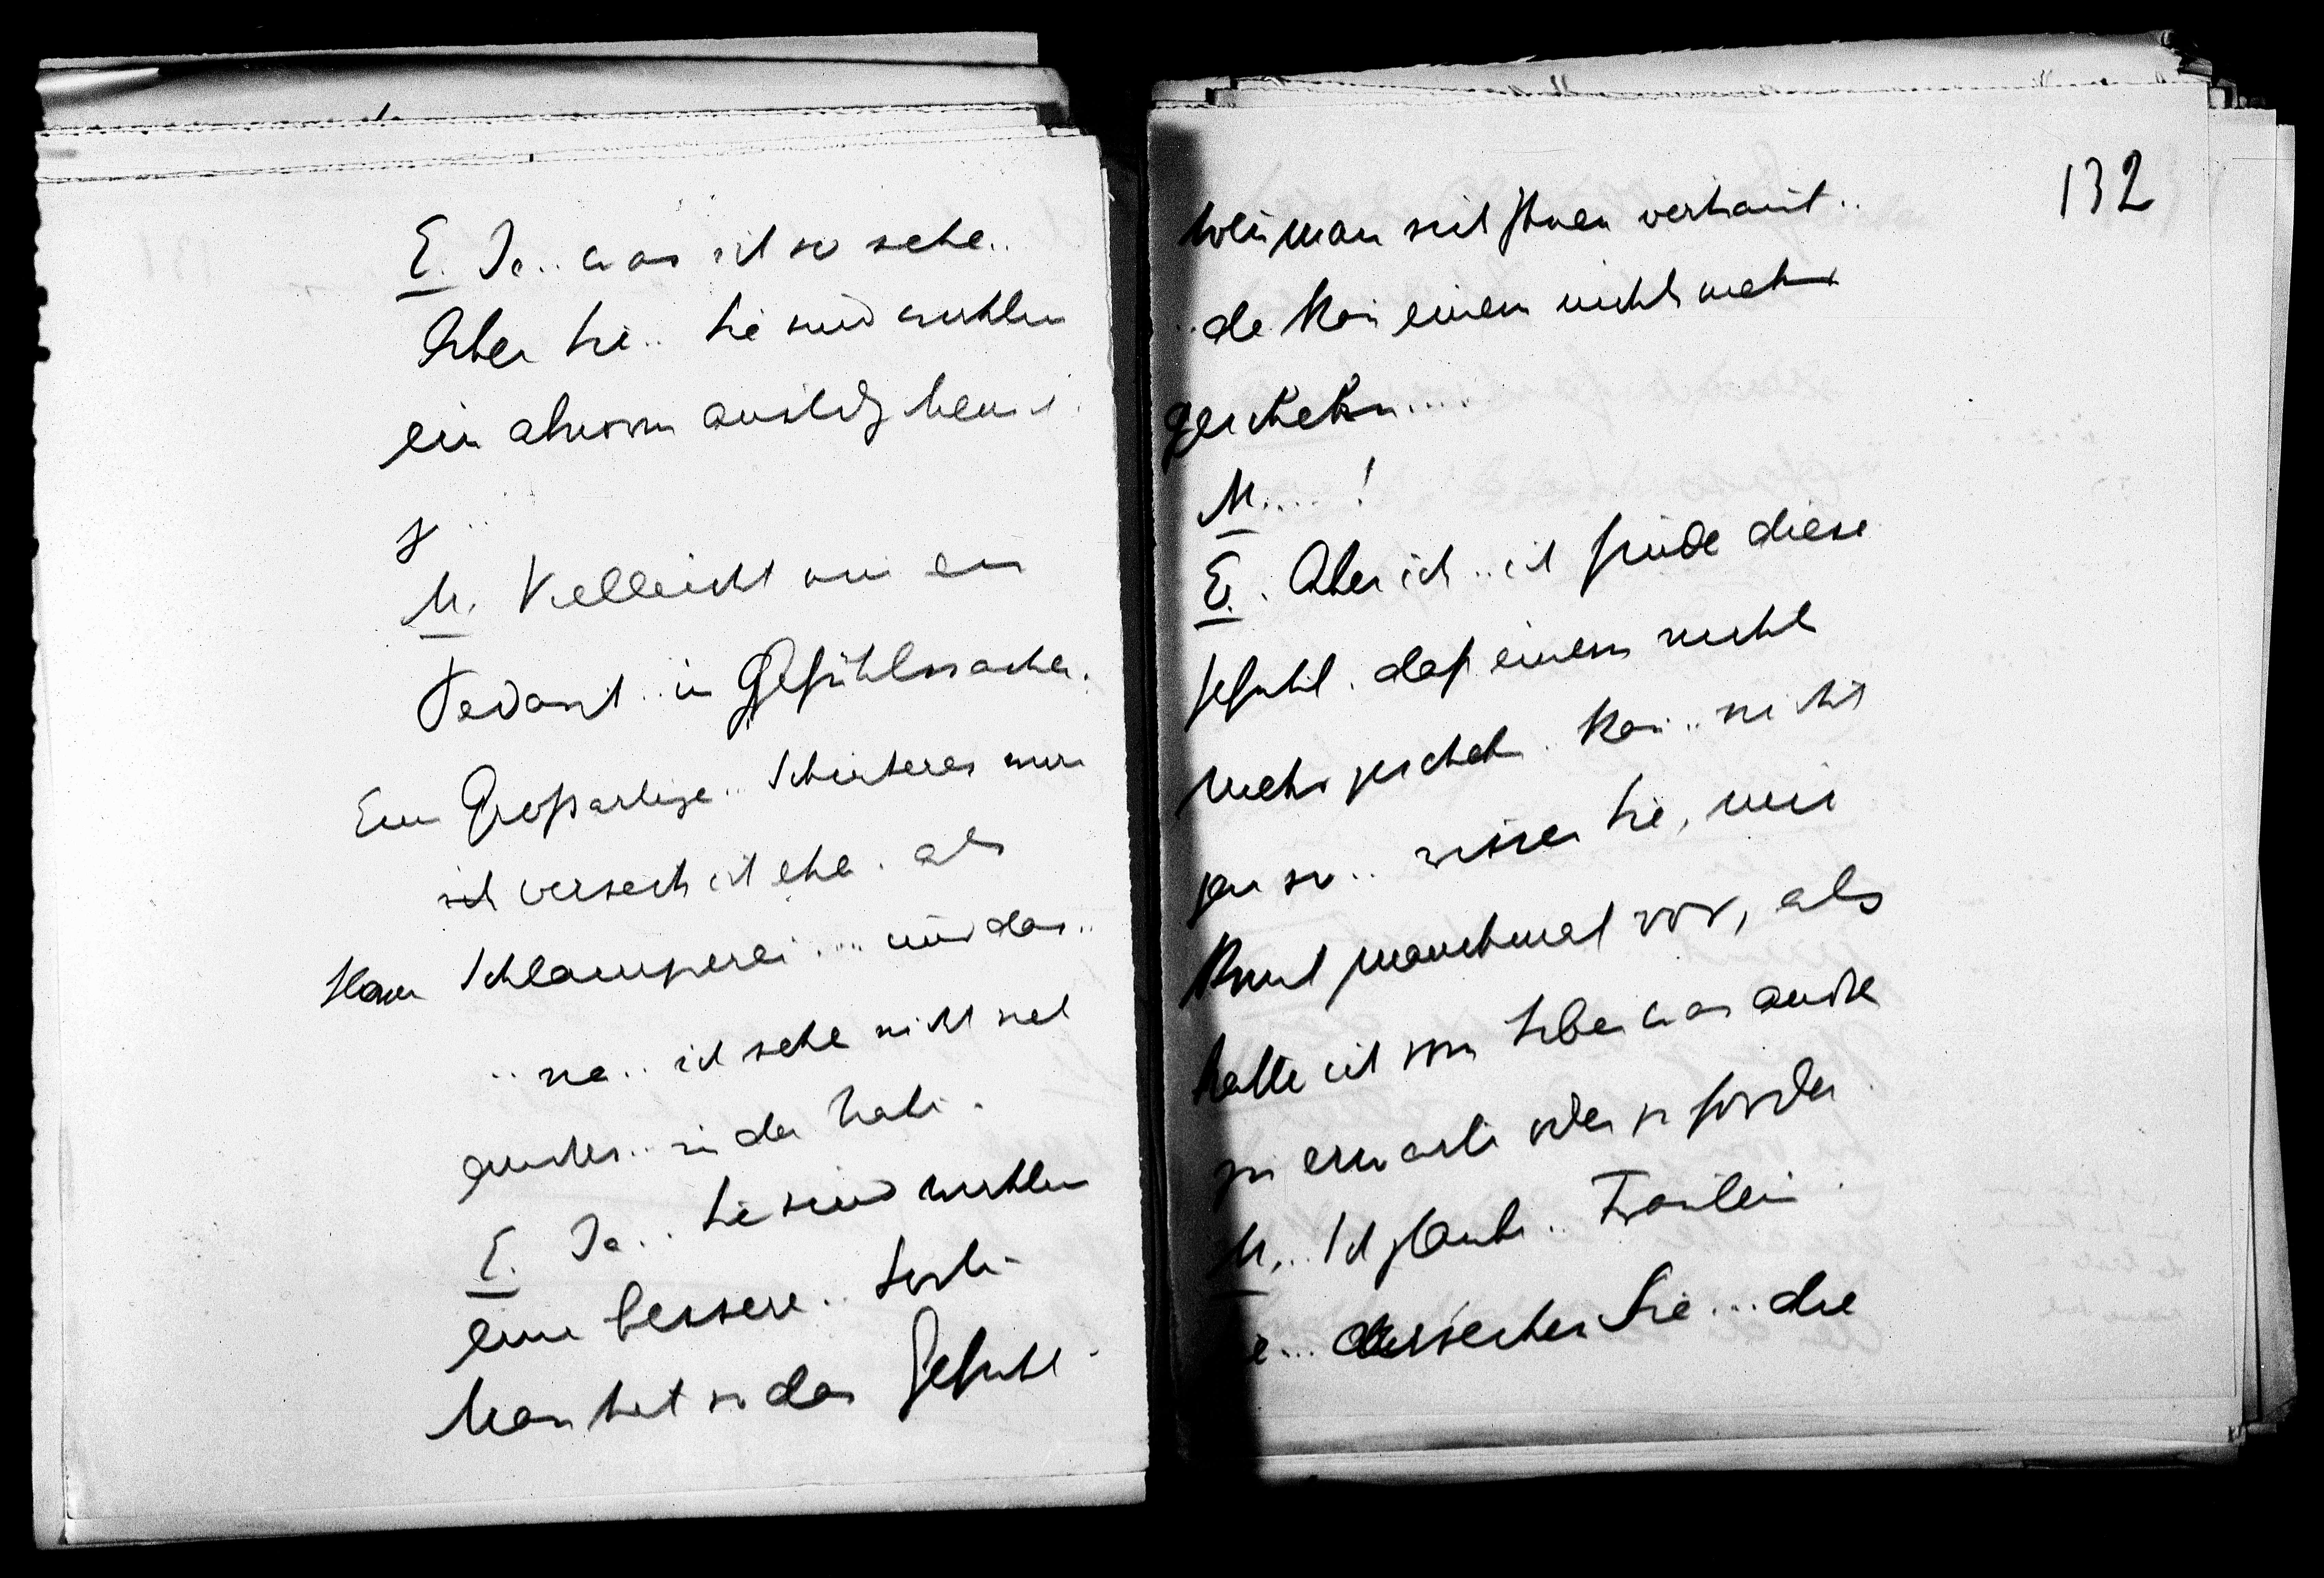 E. Ja.. was ich so sehe..
Aber Sie.. Sie sind wirklich
ein abnorm anständiger
M. Vielleicht nur ein
Pedant.. in Gefühlssachen.
Ein Großartiges.. Schönheres mir
ich versteh ich eher. als
Schlamperei.... und das..
.. na.. ich sehe nicht viel
andres.. in der Nähe.
E. Ja.. Sie sind wirklich
eine bessere.. Sorte.
Man hat so das Gefühl.
132
Wen man mit Ihnen verkehrt..
.. da kan einem nichts mehr
geschehn....
M.... !
E.. Aber ich.. ich finde diese
Gefühl. daß einem nichts
mehr geschehn. kan.. nicht
gar so.. wissen Sie, mir
kommt manchmal vor, als
hätte ich vom Leben was andre
zu erwarten oder zu fordern.
M... Ich glaube.. Fräulein.
Sie... die